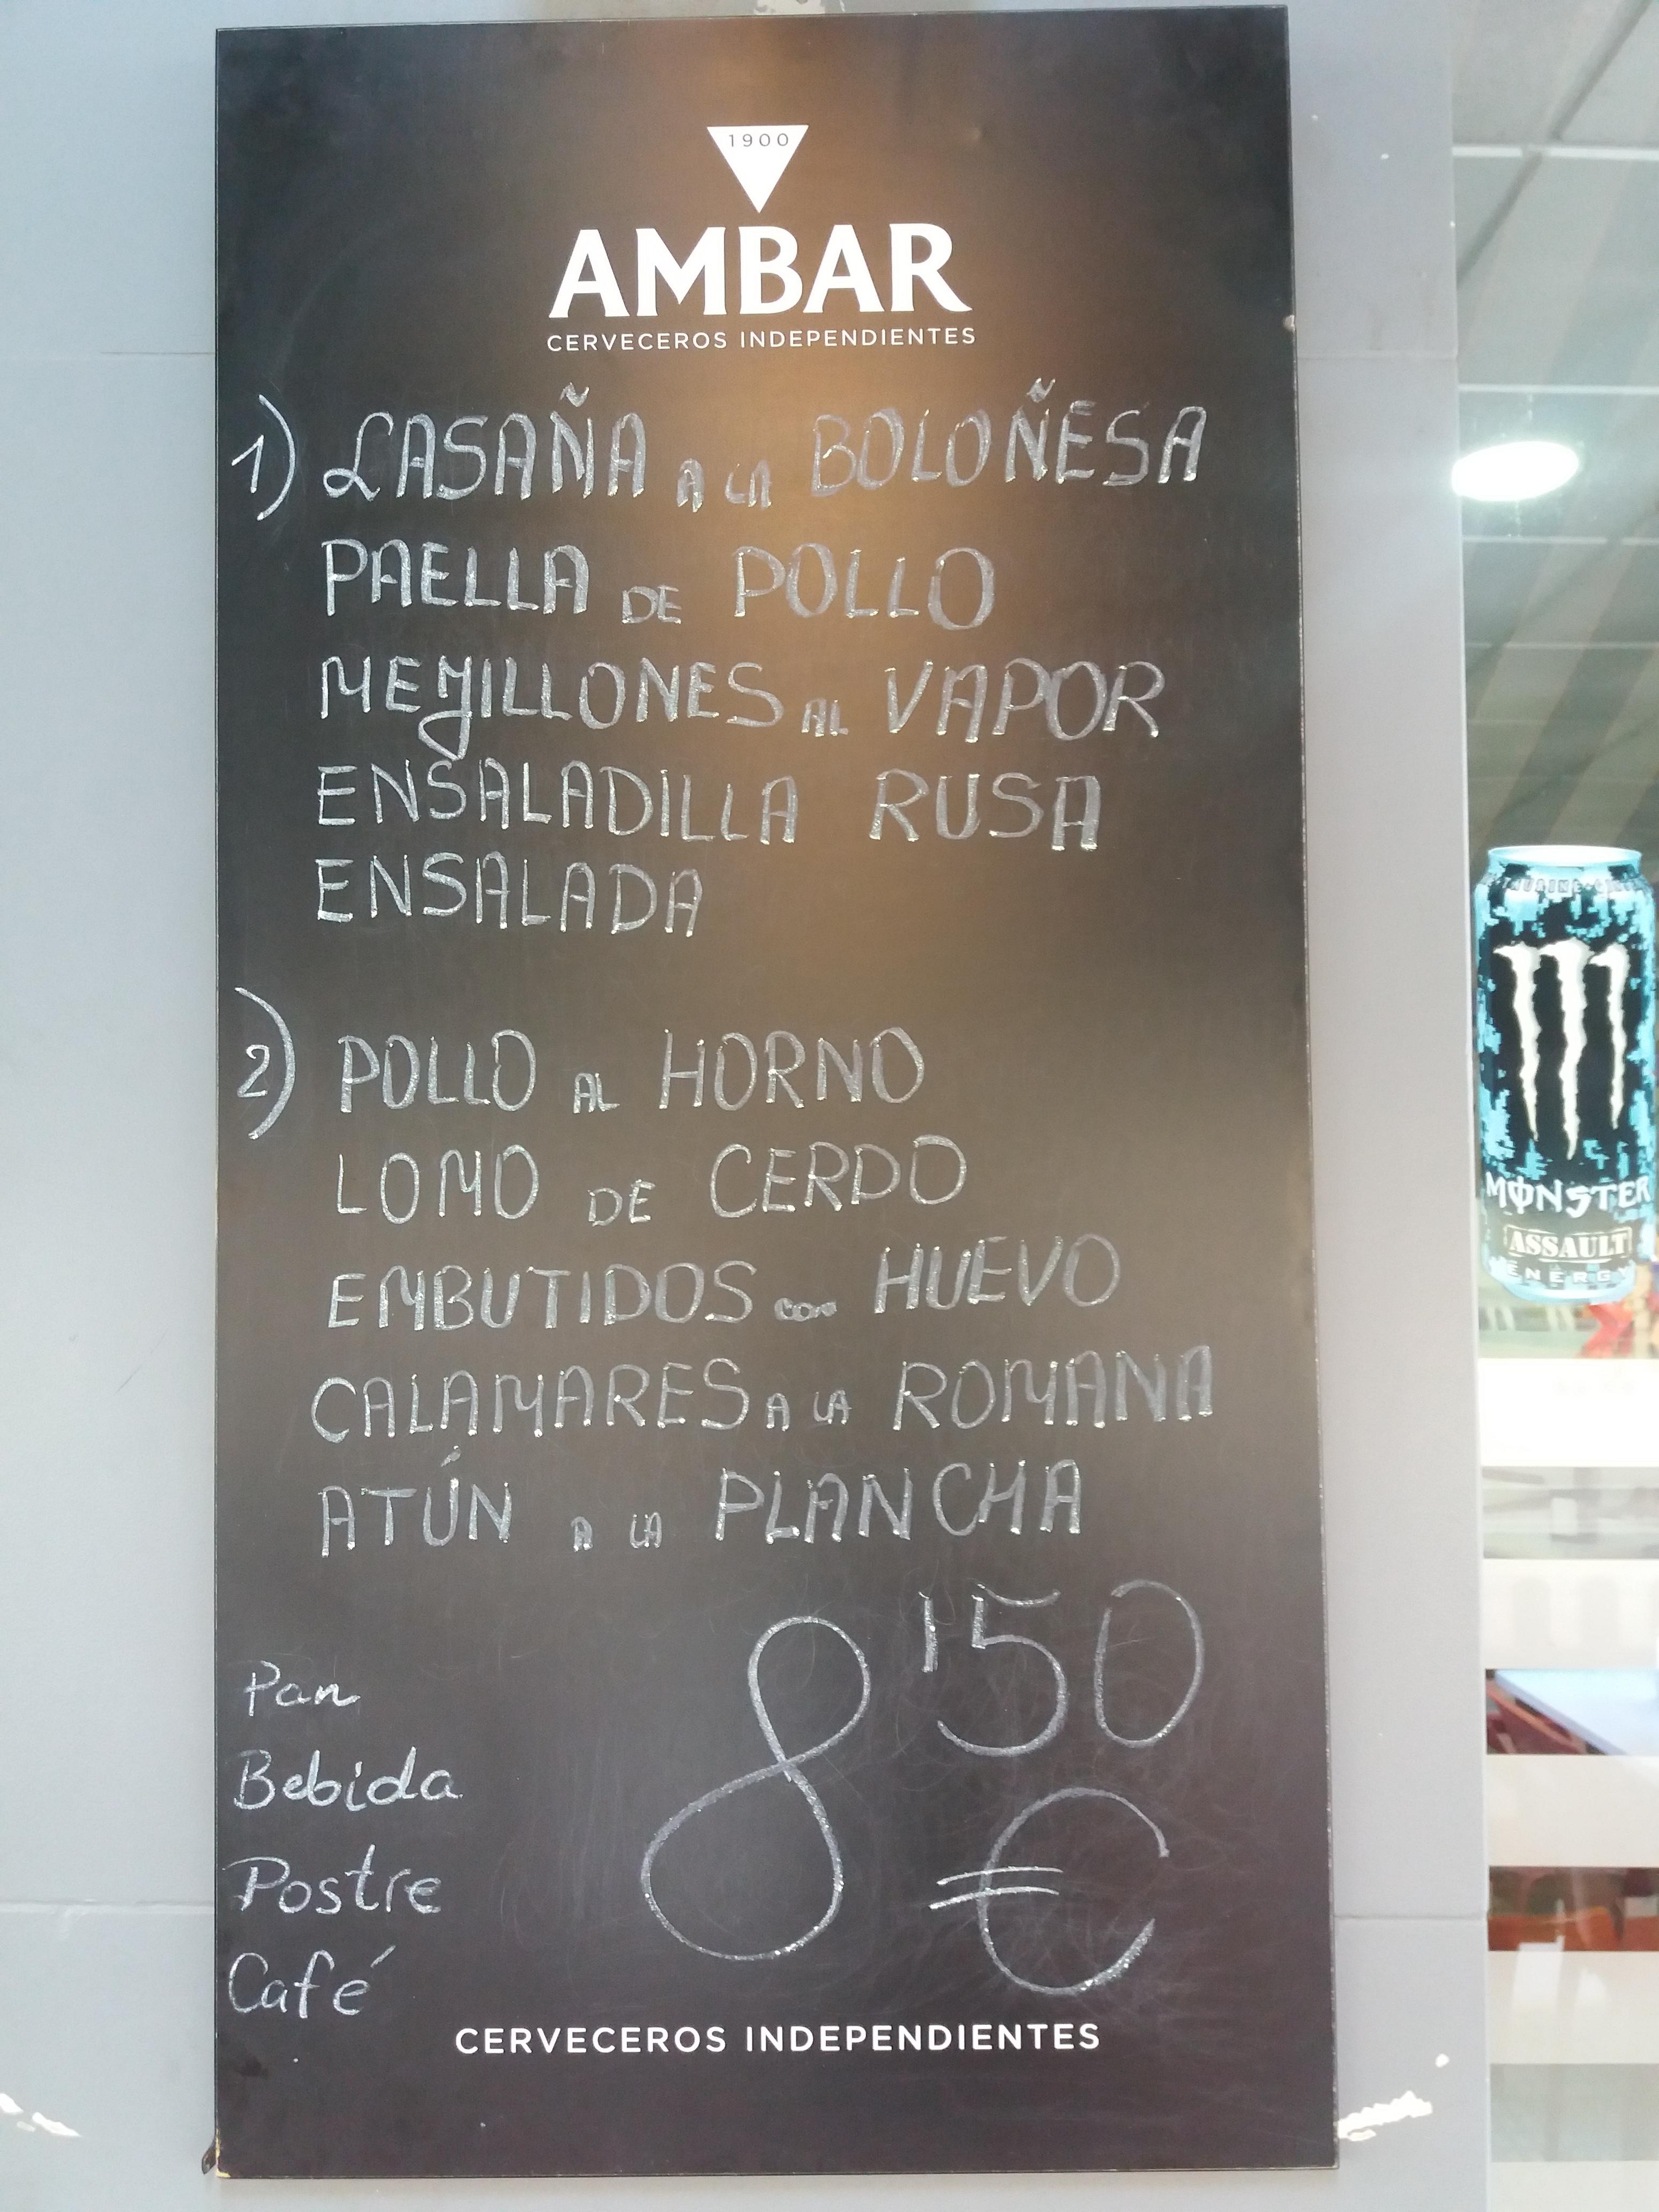 1900
AMBAR
CERVECEROS INDEPENDIENTES
1) LASAÑA A LA BOLOÑESA
PAELLA DE POLLO
MEJILLONES AL VAPOR
ENSALADILLA RUSA
ENSALADA
2) POLLO AL HORNO
LOMO DE CERDO
EMBUTIDOS con HUEVO
CALAMARES A LA ROMANA
ATÚN A LA PLANCHA
8'50
€
Pan
Bebida
Postre
Café
CERVECEROS INDEPENDIENTES
MONSTER
ASSAULT
ENERGY